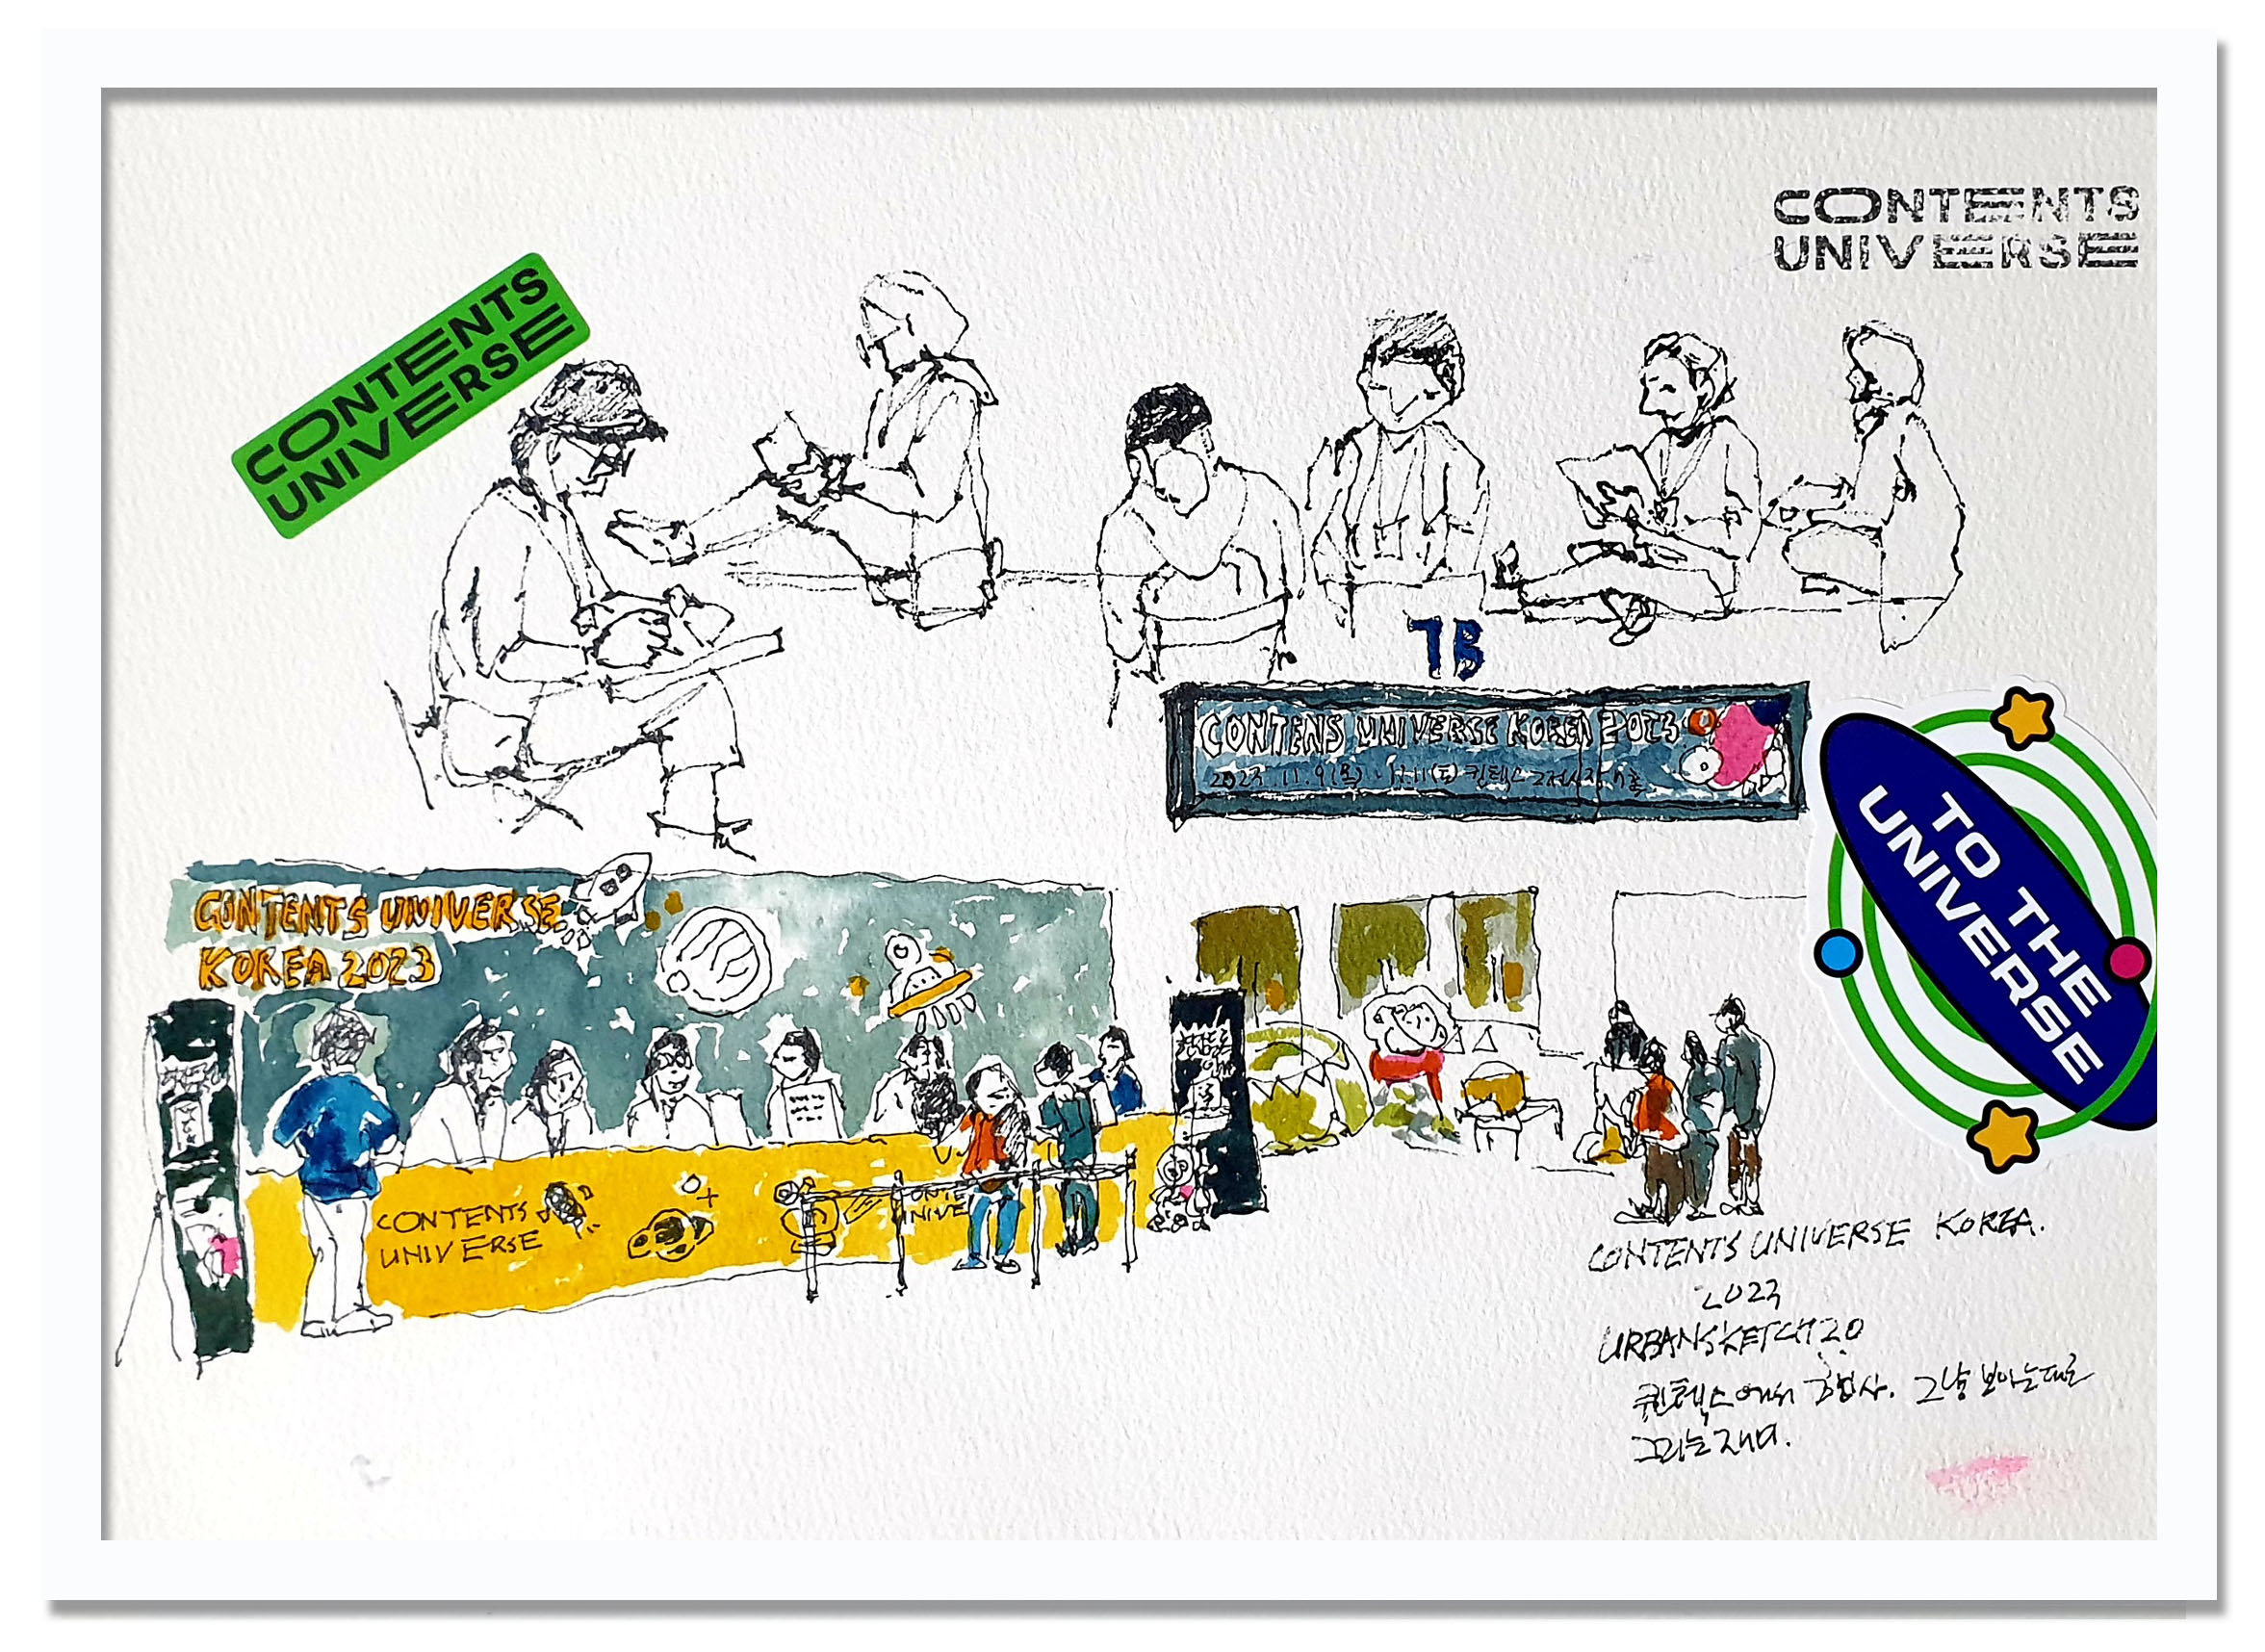 CONTENTS
UNIVERSE
CONTENTS
UNIVERSE
7B
CONTENS UNIVERSE KOREA 2023
2023 11.9(목) 11(토) 킨텍스
TO THE
UNIVERSE
CONTENTS UNIVERSE
KOREA 2023
CONTENTS
UNIVERSE
CONTE
UNIVE
CONTENTS UNIVERSE KOREA.
2023
URBANSKETCH 20
킨텍스에서 그냥 보이는대로
그리는 재미.